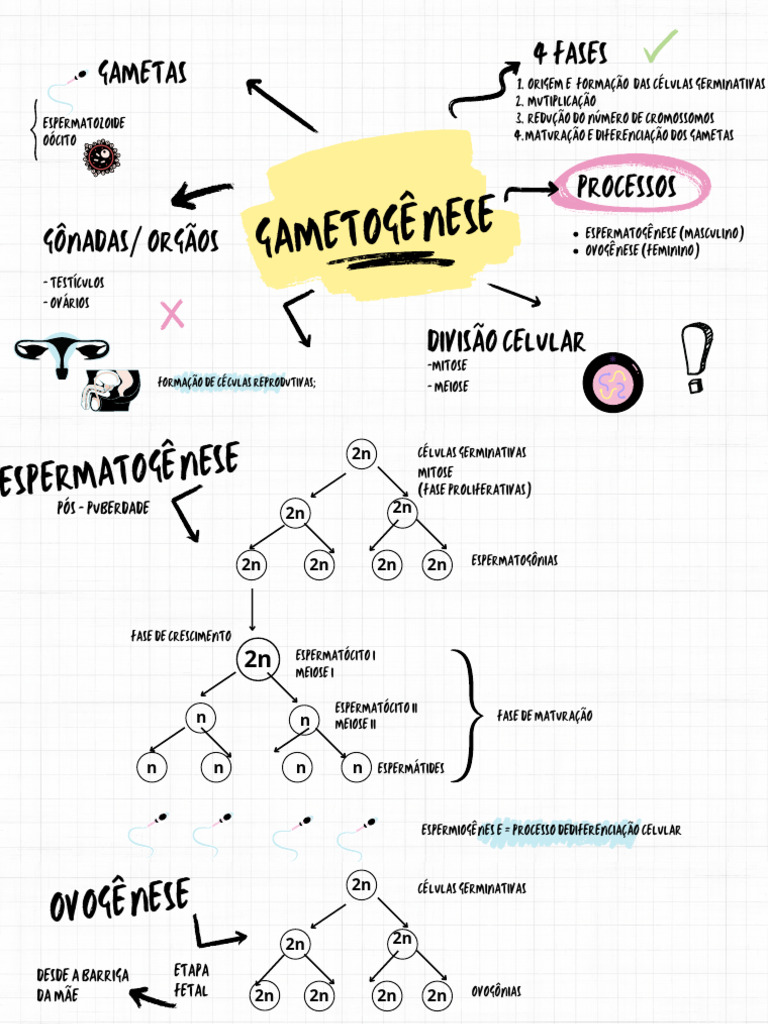 GAMETAS
ESPERMATOZOIDE
OÓCITO
4 FASES
1. ORIGEM E FORMAÇÃO DAS CÉLULAS GERMINATIVAS
2. MUTIPLICAÇÃO
3. REDUÇÃO DO NÚMERO DE CROMOSSOMOS
4. MATURAÇÃO E DIFERENCIAÇÃO DOS GAMETAS
GAMETOGÊNESE
PROCESSOS
• ESPERMATOGÊNESE (MASCULINO)
• OVOGÊNESE (FEMININO)
GÔNADAS/ ORGÃOS
- TESTÍCULOS
- OVÁRIOS
DIVISÃO CELULAR
-MITOSE
- MEIOSE
FORMAÇÃO DE CÉCULAS REPRODUTIVAS;
ESPERMATOGÊNESE
PÓS - PUBERDADE
2n
CÉLULAS GERMINATIVAS
MITOSE
(FASE PROLIFERATIVAS)
2n 2n
2n 2n 2n 2n
ESPERMATOGÔNIAS
FASE DE CRESCIMENTO
2n
ESPERMATÓCITO I
MEIOSE I
n n
ESPERMATÓCITO II
MEIOSE II
FASE DE MATURAÇÃO
n n n n
ESPERMÁTIDES
ESPERMIOGÊNES E = PROCESSO DEDIFERENCIAÇÃO CELULAR
OVOGÊNESE
2n
CÉLULAS GERMINATIVAS
2n 2n
ETAPA
FETAL
DESDE A BARRIGA
DA MÃE
2n 2n 2n 2n
OVOGÔNIAS